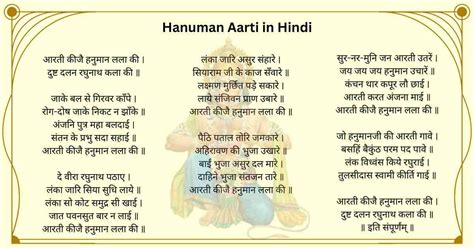 Hanuman Aarti in Hindi
आरती कीजै हनुमान लला की ।
दुष्ट दलन रघुनाथ कला की ॥
जाके बल से गिरवर काँपे ।
रोग-दोष जाके निकट न झाँके ॥
अंजनि पुत्र महा बलदाई ।
संतन के प्रभु सदा सहाई ॥
आरती कीजै हनुमान लला की ॥
दे वीरा रघुनाथ पठाए ।
लंका जारि सिया सुधि लाये ॥
लंका सो कोट समुद्र सी खाई ।
जात पवनसुत बार न लाई ॥
आरती कीजै हनुमान लला की ॥
लंका जारि असुर संहारे ।
सियाराम जी के काज सँवारे ॥
लक्ष्मण मुर्छित पड़े सकारे ।
लाये संजिवन प्राण उबारे ॥
आरती कीजै हनुमान लला की ॥
पैठि पताल तोरि जमकारे ।
अहिरावण की भुजा उखारे ॥
बाईं भुजा असुर दल मारे ।
दाहिने भुजा संतजन तारे ॥
आरती कीजै हनुमान लला की ॥
सुर-नर-मुनि जन आरती उतरें ।
जय जय जय हनुमान उचारें ॥
कंचन थार कपूर लौ छाई ।
आरती करत अंजना माई ॥
आरती कीजै हनुमान लला की ॥
जो हनुमानजी की आरती गावे ।
बसहिं बैकुंठ परम पद पावे ॥
लंक विध्वंस किये रघुराई ।
तुलसीदास स्वामी कीर्ति गाई ॥
आरती कीजै हनुमान लला की ।
दुष्ट दलन रघुनाथ कला की ॥
॥ इति संपूर्णम् ॥